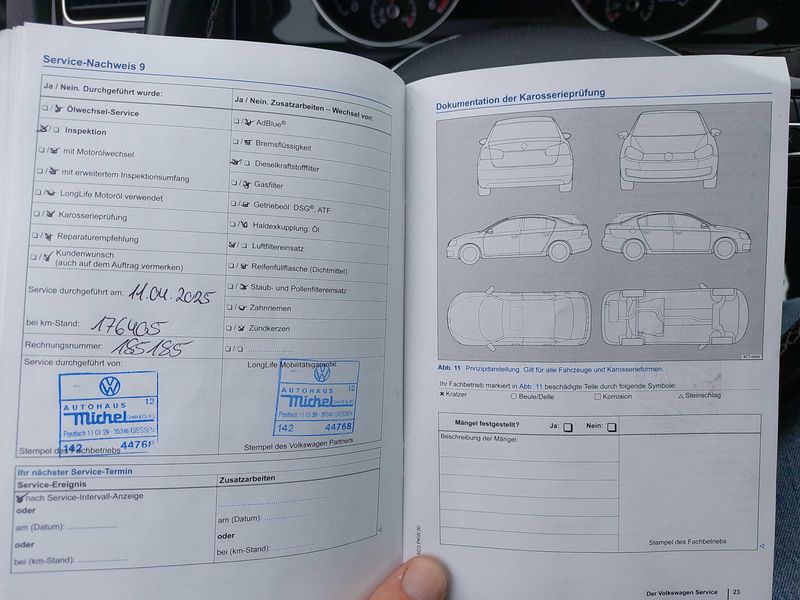 Service-Nachweis 9
Ja / Nein. Durchgeführt wurde:
Ja / Nein. Zusatzarbeiten – Wechsel von:
Ölwechsel-Service
Inspektion
mit Motorölwechsel
mit erweitertem Inspektionsumfang
LongLife Motoröl verwendet
Karosserieprüfung
Reparaturempfehlung
Kundenwunsch
(auch auf dem Auftrag vermerken)
AdBlue®
Bremsflüssigkeit
Dieselkraftstofffilter
Gasfilter
Getriebeöl: DSG®, ATF
Haldexkupplung: Öl
Luftfiltereinsatz
Reifenfüllflasche (Dichtmittel)
Staub- und Pollenfiltereinsatz
Zahnriemen
Zündkerzen
Service durchgeführt am: 11.04.2025
bei km-Stand: 176405
Rechnungsnummer: 185185
Service durchgeführt von:
LongLife Mobilitätsgarantie
12
AUTOHAUS
Michel GmbH & Co. KG
Postfach 11 01 29 - 35346 GIESSEN
142 44768
Stempel des Fachbetriebs
12
AUTOHAUS
Michel GmbH & Co. KG
Postfach 11 01 29 - 35346 GIESSEN
142 44768
Stempel des Volkswagen Partners
Ihr nächster Service-Termin
Service-Ereignis
Zusatzarbeiten
nach Service-Intervall-Anzeige
oder
am (Datum):
oder
bei (km-Stand):
am (Datum):
oder
bei (km-Stand):
Dokumentation der Karosserieprüfung
Abb. 11 Prinzipdarstellung. Gilt für alle Fahrzeuge und Karosserieformen.
Ihr Fachbetrieb markiert in Abb. 11 beschädigte Teile durch folgende Symbole:
Kratzer
Beule/Delle
Korrosion
Steinschlag
Mängel festgestellt? Ja: Nein:
Beschreibung der Mängel:
Stempel des Fachbetriebs
Der Volkswagen Service 23